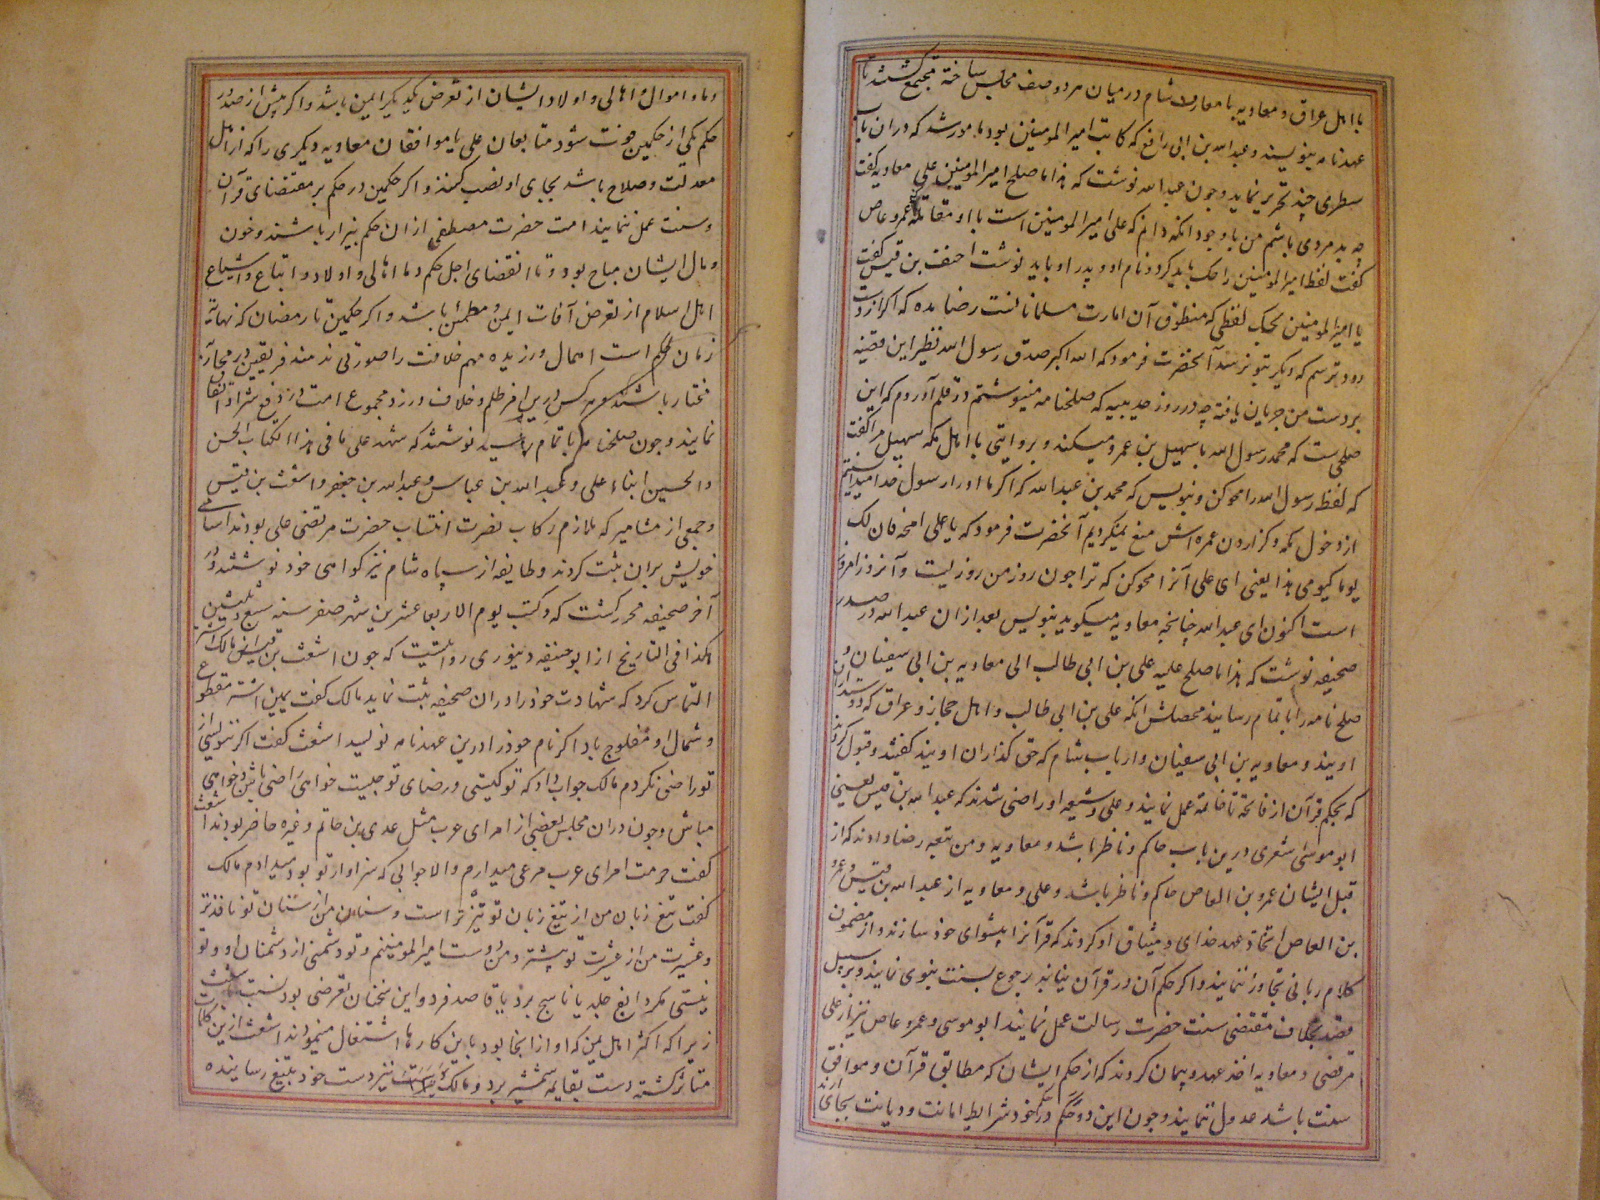 با اهل عراق و معاویه با معارف شام در میان هر دو صف مجلس ساخته مجتمع گشتند تا
عهدنامه بنویسند و عبدالله بن ابی رافع که کاتب امیرالمومنین بود مامور شد که در ان باب
سطری چند تحریر نماید و چون عبدالله نوشت که هذا ما صلح امیرالمومنین علی معاویه گفت
چه بد مردی باشم من با وجود انکه دانم که علی امیرالمومنین است با او مقاتله عمرو عاص
گفت لفظ امیرالمومنین را حک باید کرد و نام او و پدر او باید نوشت احنف بن قیس گفت
یا امیرالمومنین بحک لفظی که منطوق آن امارت مسلمانانست رضا مده که اگر از دست
رود بترسم که دیگر بتو نرسد آنحضرت فرمود که الله اکبر صدق رسول الله نظیر این قضیه
بر دست من جریان یافته چه در روز حدیبیه که صلحنامه مینوشتم در قلم آوردم که این
صلحی ست که محمد رسول الله با سهیل بن عمرو میکند و بروایتی با اهل مکه سهیل مرا گفت
که لفظ رسول الله را محو کن و بنویس که محمد بن عبدالله که اگر ما او را رسول خدا میدانستیم
از دخول مکه و گزاردن عمره اش منع نمیکردیم آنحضرت فرمود که یا علی امحه فان لک
یوما کیومی هذا یعنی ای علی آنرا محو کن که ترا چون روز من روزیست و آنروز امروز
است اکنون ای عبدالله چنانچه معاویه میگوید بنویس بعد از ان عبدالله در صدر
صحیفه نوشت که هذا ما صلح علیه علی بن ابی طالب الی معاویه بن ابی سفیان و
صلح نامه را باتمام رسانید محصلش انکه علی بن ابی طالب و اهل حجاز و عراق که دوستداران
اویند و معاویه بن ابی سفیان و ارباب شام که حق گذاران اویند گفتند و قبول کردند
که بحکم قرآن از فاتحه تا خاتمه عمل نمایند و علی و شیعه او راضی شدند که عبدالله بن قیس یعنی
ابو موسی اشعری درین باب حاکم و ناظر باشد و معاویه و من تبعه رضا دادند که از
قبل ایشان عمرو بن العاص حاکم و ناظر باشد و علی و معاویه از عبدالله بن قیس و عمرو
بن العاص اتخاذ عهد خدای و میثاق او کردند که قرآنرا پیشوای خود سازند و از مضمون
کلام ربانی تجاوز ننمایند و اگر حکم آن در قرآن نیابند رجوع بسنت نبوی نمایند و بر سبیل
مقتضی سنت حضرت رسالت عمل نمایند ابو موسی و عمرو عاص نیز از علی
مرتضی و معاویه اخذ عهد و پیمان کردند که از حکم ایشان که مطابق قرآن و موافق
سنت باشد عدول ننمایند و چون این دو حکم در حکم خود شرایط امانت و دیانت بجای آرند
دما و اموال و اهالی و اولاد ایشان از تعرض یکدیگر ایمن باشد و اگر پیش از صدور
حکم یکی از حکمین فوت شود متابعان علی یا موافقان معاویه دیگری را که از اهل
معدلت و صلاح باشد بجای او نصب کنند و اگر حکمین در حکم بر مقتضای قرآن
و سنت عمل ننمایند امت حضرت مصطفی از ان حکم بیزار باشند و خون
و مال ایشان مباح بود و تا انقضای اجل حکم دما اهالی و اولاد و اتباع و اشیاع
اهل اسلام از تعرض آفات ایمن و مطمئن باشد و اگر حکمین تا رمضان که نهایة
زمان حکم است اهمال ورزیده مهم خلافت را صورتی ندهند فریقین در محاربه
مختار باشند و هر کس درین امر ظلم و خلاف ورزد مجموع امت در دفع شر او اتفاق
نمایند و چون صلحنامه باتمام رسید نوشتند که شهد علی ما فی هذا الکتاب الحسن
والحسین ابناء علی و عبدالله بن عباس و عبدالله بن جعفر و اشعث بن قیس
و جمعی از مشاهیر که ملازم رکاب نصرت انتساب حضرت مرتضی علی بودند اسامی
خویش بران ثبت کردند و طایفه از سپاه شام نیز گواهی خود نوشتند و در
آخر صحیفه محرر گشت که و کتب یوم الاربعا عشرین شهر صفر سنه سبع و ثلثین
هکذا فی التاریخ از ابو حنیفه دینوری روایتست که چون اشعث بن قیس از مالک اشتر
التماس کرد که شهادت خود را در ان صحیفه ثبت نماید مالک گفت یمین اشتر مقطوع
و شمال او مفلوج باد اگر نام خود را درین عهدنامه نویسد اشعث گفت اگر ننویسی از
تو راضی نگردم مالک جواب داد که تو کیستی و رضای تو چیست خواهی راضی باش و خواهی
مباش و چون دران مجلس بعضی از امرای عرب مثل عدی بن حاتم و غیره حاضر بودند اشعث
گفت حرمت امرای عرب مرعی میدارم والا جوابی که سزاوار تو بود میدادم مالک
گفت تیغ زبان من از تیغ زبان تو تیزتر است و سنان من از سنان تو نافذتر
و عشیرت من از عشیرت تو بیشتر و من دوست امیرالمومنینم و تو دشمنی از دشمنان او و تو
نیستی مگر دابغ جلد یا ناسج برد یا قاصد فرد و این سخنان تعرضی بود نسبت باشعث
زیرا که اکثر اهل یمن که او از انجا بود باین کارها اشتغال مینمودند اشعث ازین کلمات
متاثر گشته دست بقایمه شمشیر برد و مالک نیز دست خود بتیغ رسانیده